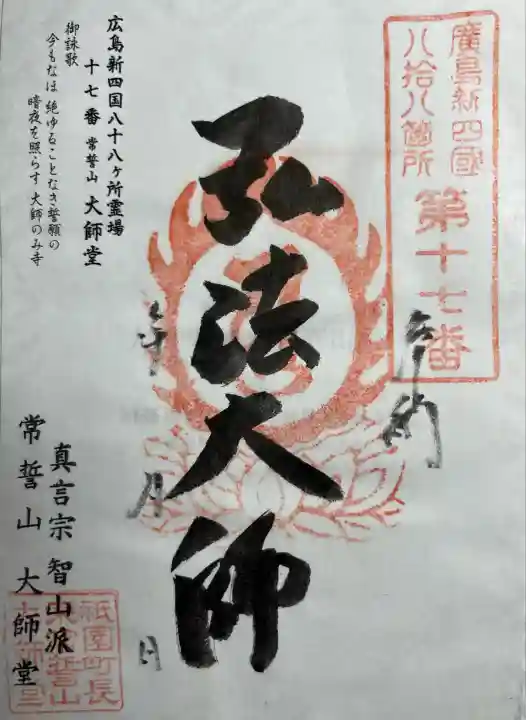 廣島新四國
八拾八箇所
第十七番
奉納
弘法大師
年 月 日
広島新四国八十八ヶ所霊場
十七番 常誓山 大師堂
御詠歌
今もなほ 絶ゆることなき誓願の
暗夜を照らす 大師のみ寺
真言宗 智山派
常誓山 大師堂
祇園町長